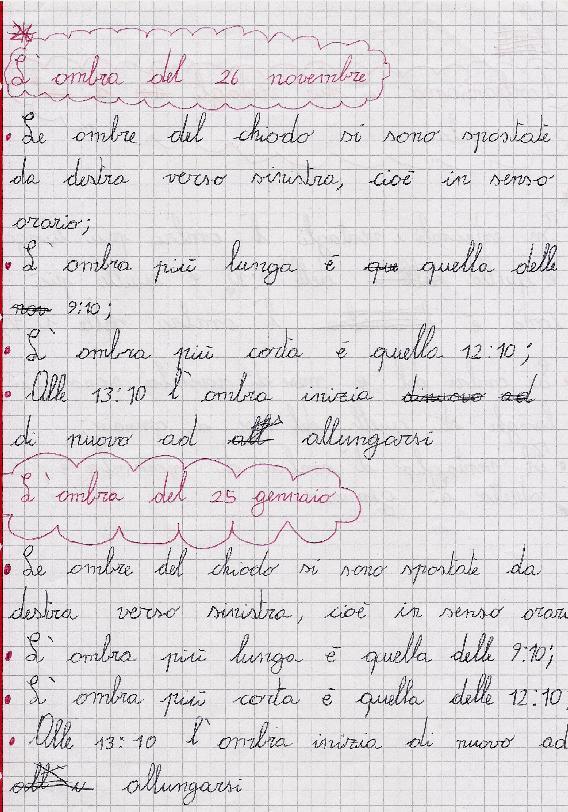 L'ombra del 26 novembre
• Le ombre del chiodo si sono spostate
da destra verso sinistra, cioè in senso
orario;
• L'ombra più lunga è quella delle
9:10;
• L'ombra più corta è quella 12:10;
• Alle 13:10 l'ombra inizia
di nuovo ad allungarsi
L'ombra del 25 gennaio
• Le ombre del chiodo si sono spostate da
destra verso sinistra, cioè in senso orari
• L'ombra più lunga è quella delle 9:10;
• L'ombra più corta è quella delle 12:10;
• Alle 13:10 l'ombra inizia di nuovo ad
allungarsi